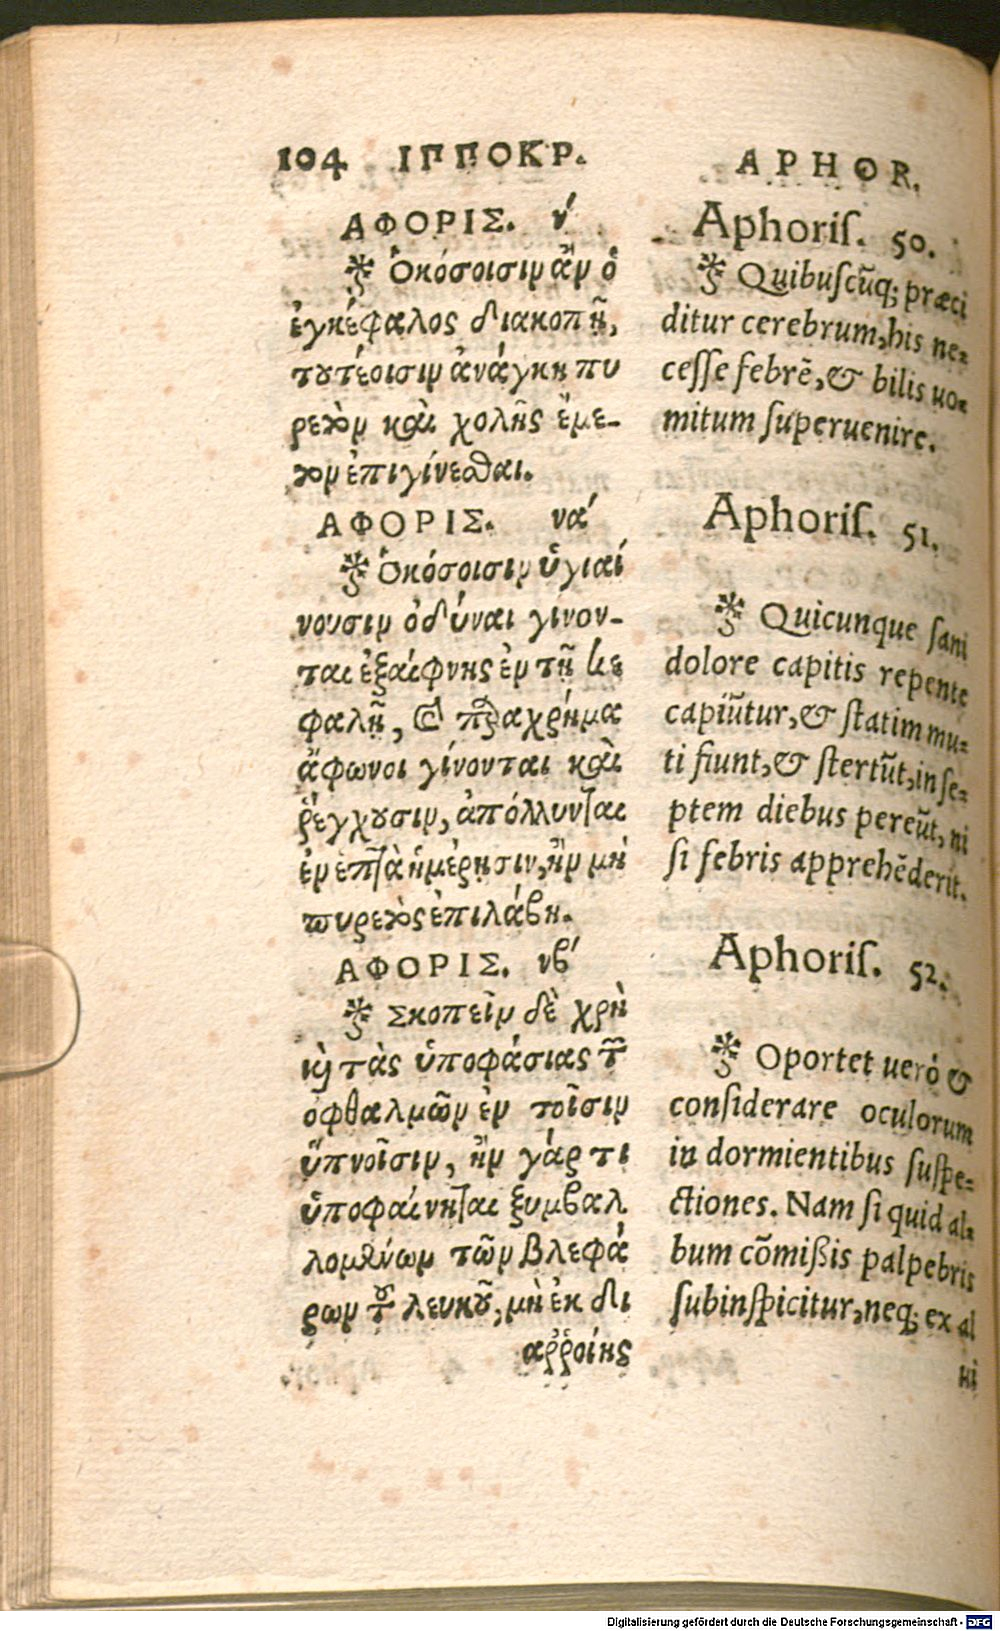 104 ΙΠΠΟΚΡ.
ΑΦΟΡΙΣ. ν´
Ὁκόσοισιν ἂν ὁ
ἐγκέφαλος διακοπῇ,
τουτέοισιν ἀνάγκη πυ
ρετὸν καὶ χολῆς ἔμε-
τον ἐπιγίνεσθαι.
ΑΦΟΡΙΣ. να´
Ὁκόσοισιν ὑγιαί
νουσιν ὀδύναι γίνον-
ται ἐξαίφνης ἐν τῇ κε
φαλῇ, καὶ παραχρήμα
ἄφωνοι γίνονται καὶ
ῥέγχουσιν, ἀπόλλυνται
ἐν ἑπτὰ ἡμέρησιν, ἢν μὴ
πυρετὸς ἐπιλάβη.
ΑΦΟΡΙΣ. νβ´
Σκοπεῖν δὲ χρὴ
καὶ τὰς ὑποφάσιας τῶν
ὀφθαλμῶν ἐν τοῖσιν
ὕπνοῖσιν, ἢν γάρ τι
ὑποφαίνηται ξυμβαλ
λομένων τῶν βλεφά
ρων τοῦ λευκοῦ, μὴ ἐκ δι
αῤῥοίης
APHOR.
Aphoriſ. 50.
Quibuſcũq; præci
ditur cerebrum, his ne-
ceſſe febrẽ, & bilis uo-
mitum ſuperuenire.
Aphoriſ. 51.
Quicunque ſani
dolore capitis repente
capiũtur, & ſtatim mu-
ti fiunt, & ſtertũt, in ſe-
ptem diebus pereũt, ni
ſi febris apprehẽderit.
Aphoriſ. 52.
Oportet uerò &
conſiderare oculorum
in dormientibus ſuſpe-
ctiones. Nam ſi quid al-
bum cõmißis palpebris
ſubinſpicitur, neq; ex al
ui
Digitalisierung gefördert durch die Deutsche Forschungsgemeinschaft - DFG